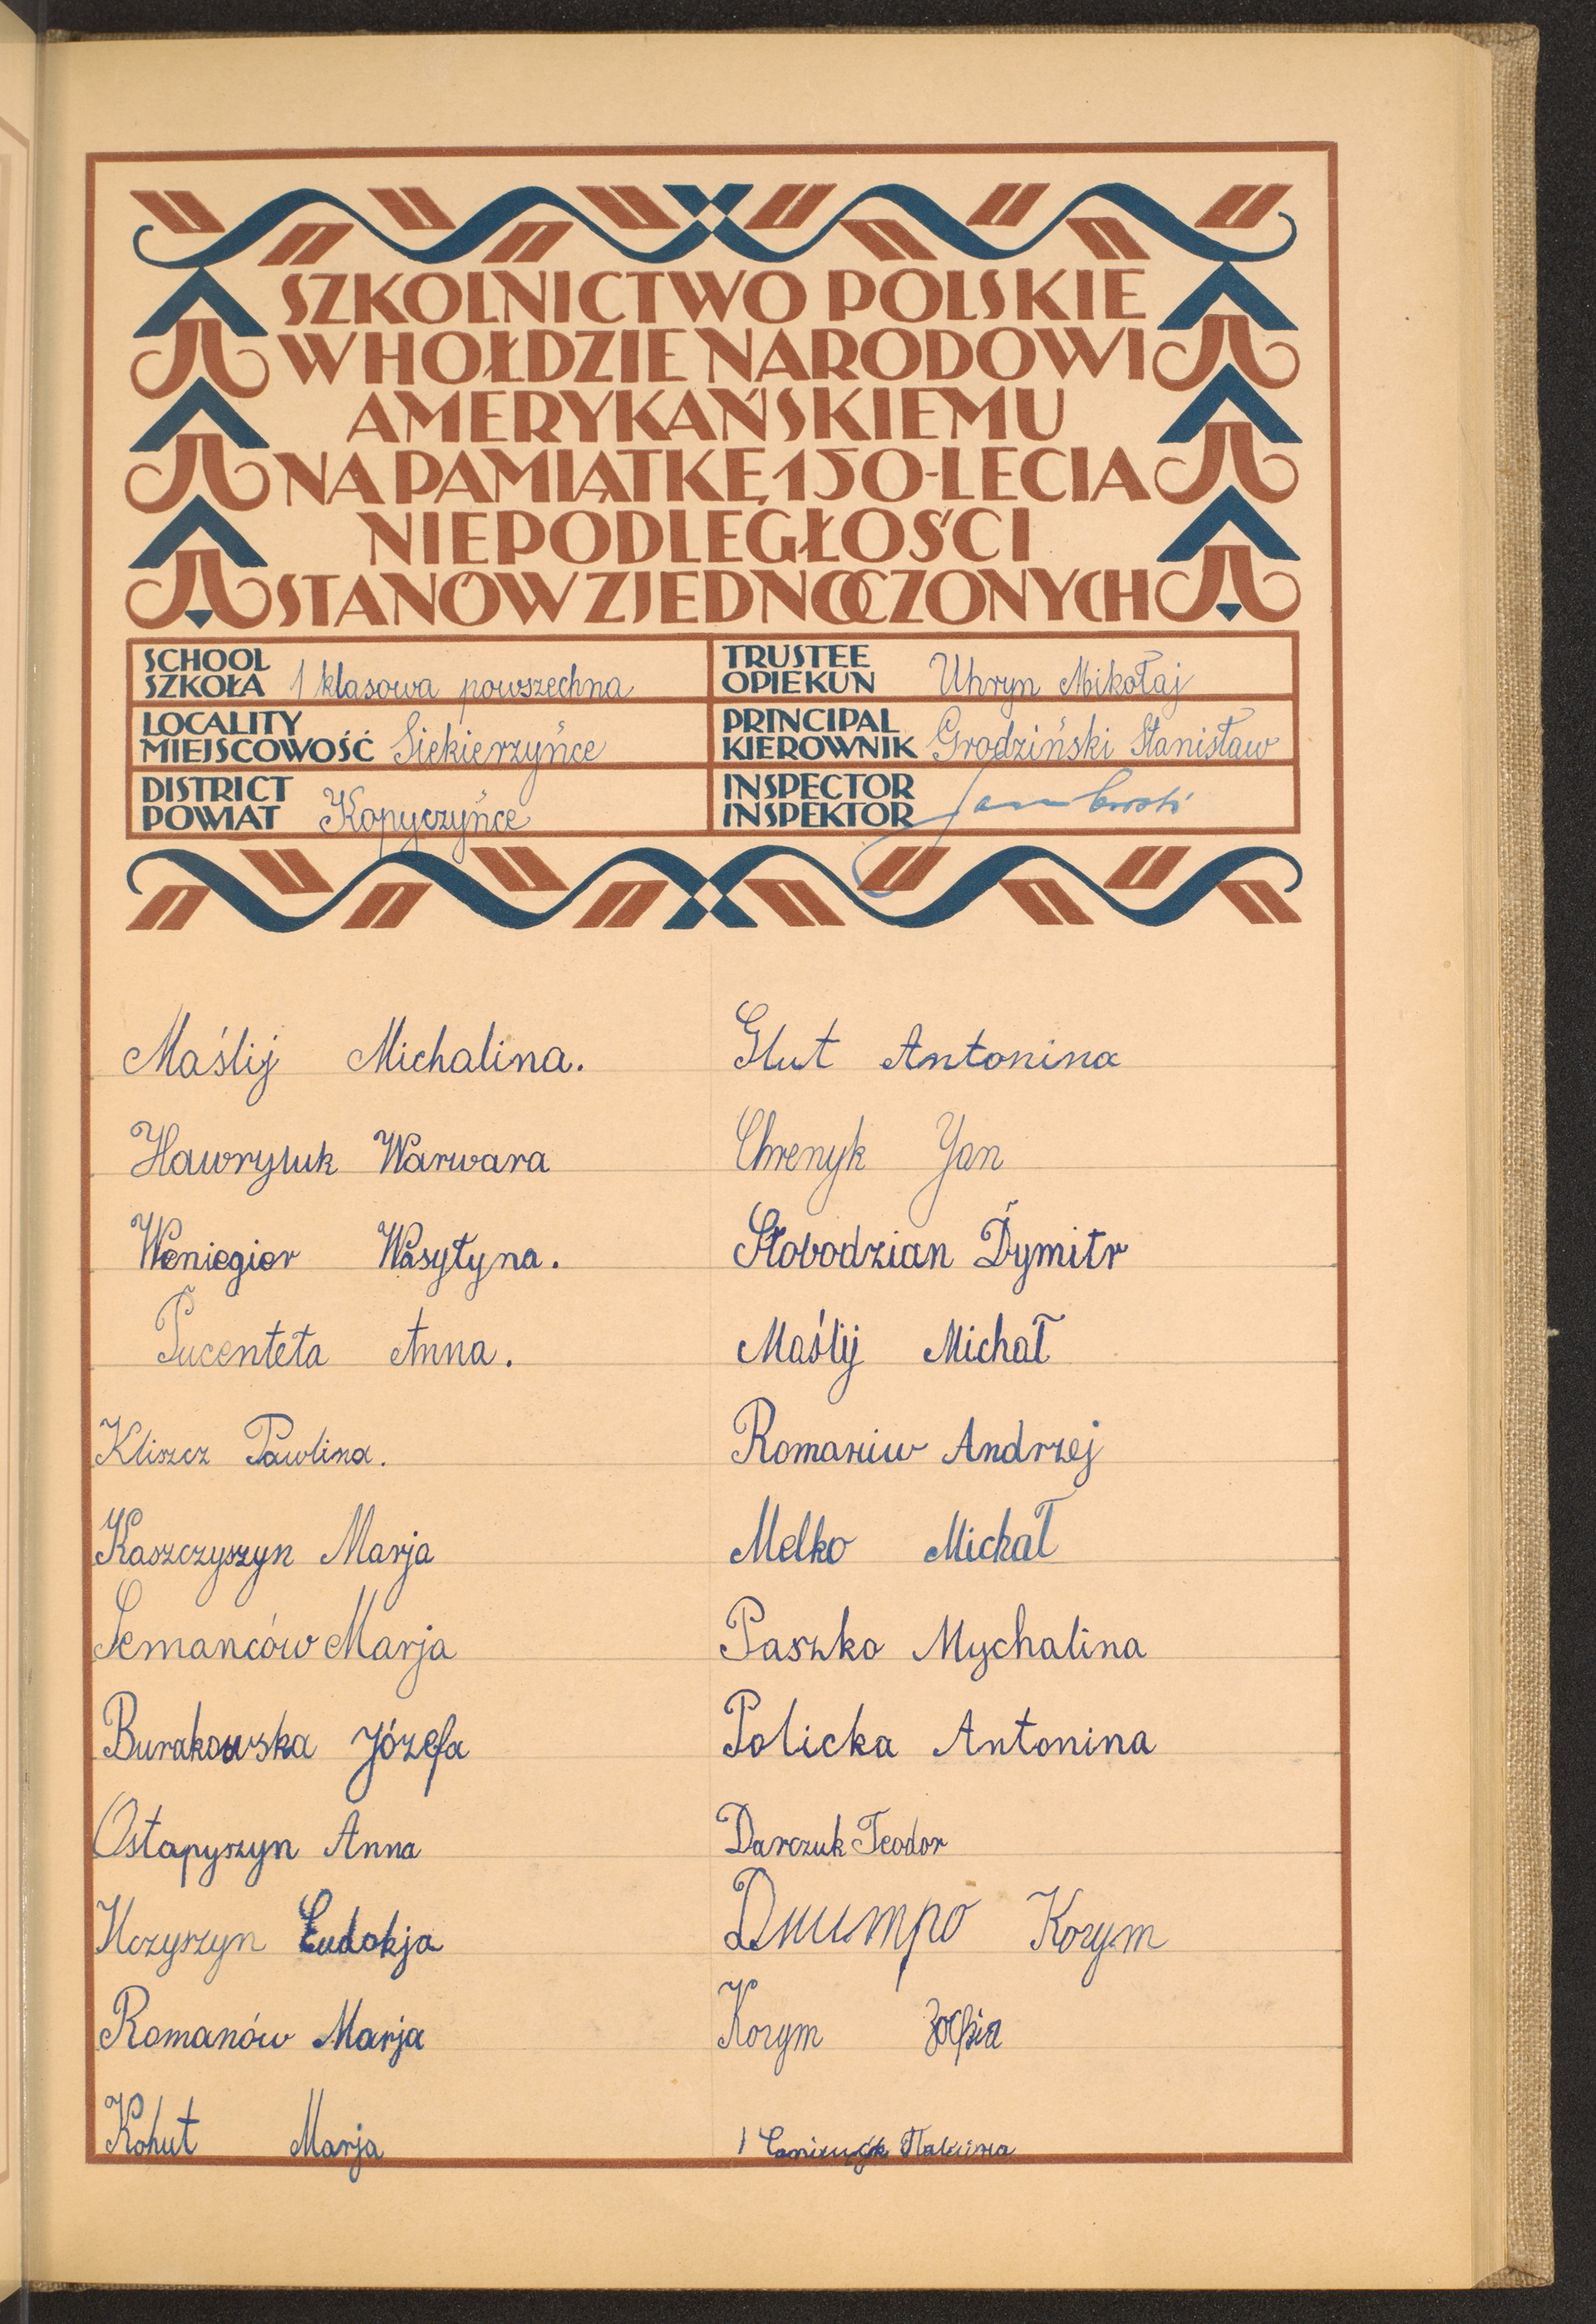 SZKOLNICTWO POLSKIE
W HOŁDZIE NARODOWI
AMERYKAŃSKIEMU
NA PAMIĄTKĘ 150-LECIA
NIEPODLEGŁOŚCI
STANÓW ZJEDNOCZONYCH
SCHOOL
SZKOŁA 1 klasowa powszechna
TRUSTEE
OPIEKUN Uhryn Mikołaj
LOCALITY
MIEJSCOWOŚĆ Siekierzyńce
PRINCIPAL
KIEROWNIK Grodziński Stanisław
DISTRICT
POWIAT Kopyczyńce
INSPECTOR
INSPEKTOR
Maślij Michalina.
Hawryluk Warwara
Weniegier Wasytyna.
Pucenteta Anna.
Kliszcz Pawlina.
Kaszczyszyn Marja
Semanców Marja
Burakowska Józefa
Ostapyszyn Anna
Eudokja
Romanów Marja
Kohut Marja
Glut Antonina
Chrenyk Jan
Słobodzian Dymitr
Maślij Michał
Romaniw Andrzej
Melko Michał
Paszko Mychalina
Policka Antonina
Darczuk Teodor
Дмитро Korym
Korym Zofia